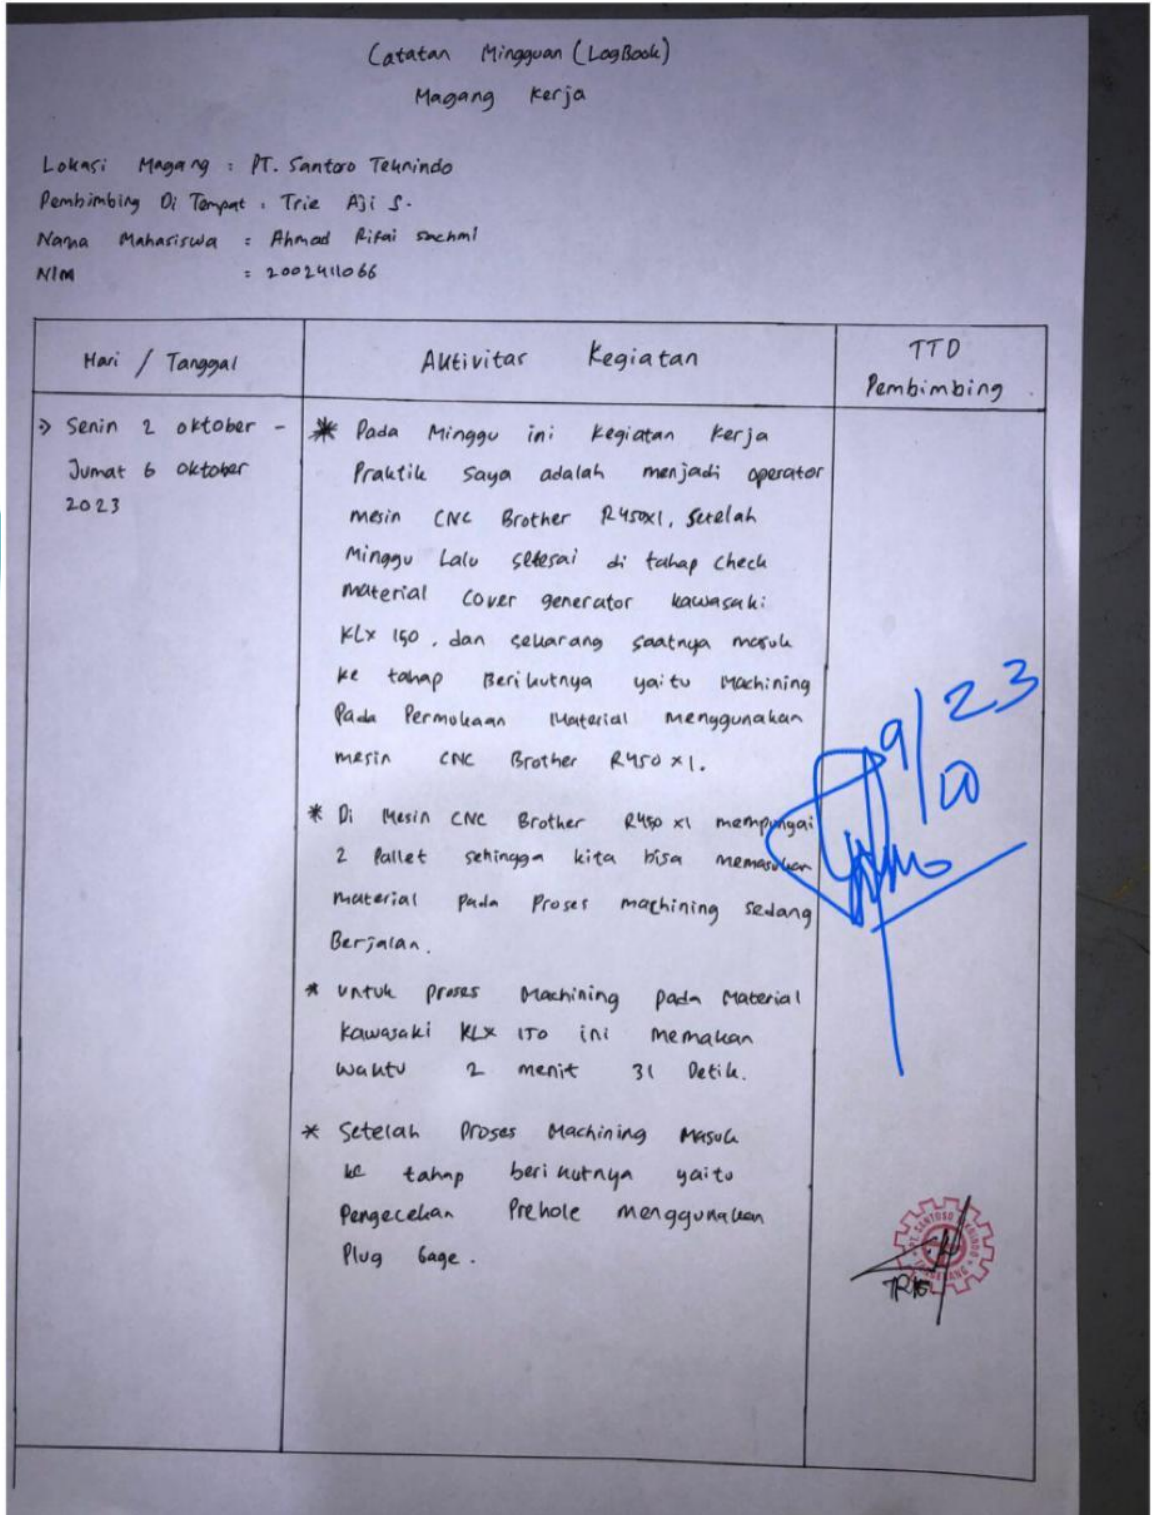 Catatan Mingguan (LogBook)
Magang Kerja
Lokasi Magang : PT. Santoro Teknindo
Pembimbing Di Tempat : Trie Aji S.
Nama Mahasiswa : Ahmad Rifai Sachmi
NIM : 2002411066
Hari / Tanggal
Aktivitas Kegiatan
TTD
Pembimbing
Senin 2 oktober -
Jumat 6 oktober
2023
* Pada Minggu ini Kegiatan Kerja
Praktik saya adalah menjadi operator
mesin CNC Brother R450x1, Setelah
Minggu Lalu selesai di tahap check
material cover generator kawasaki
KLX 150. dan sekarang saatnya masuk
ke tahap Berikutnya yaitu Machining
Pada Permukaan Material menggunakan
mesin CNC Brother R450 x1.
* Di Mesin CNC Brother R450 x1 mempunyai
2 Pallet sehingga kita bisa memasukan
material Pada Proses machining sedang
Berjalan.
* untuk proses Machining pada Material
Kawasaki KLX 150 ini memakan
waktu 2 menit 31 Detik.
* Setelah Proses Machining Masuk
ke tahap berikutnya yaitu
Pengecekan Prehole menggunakan
Plug Gage.
9/10 23
PT. SANTOSO TEKNINDO
TANGERANG
TRIE